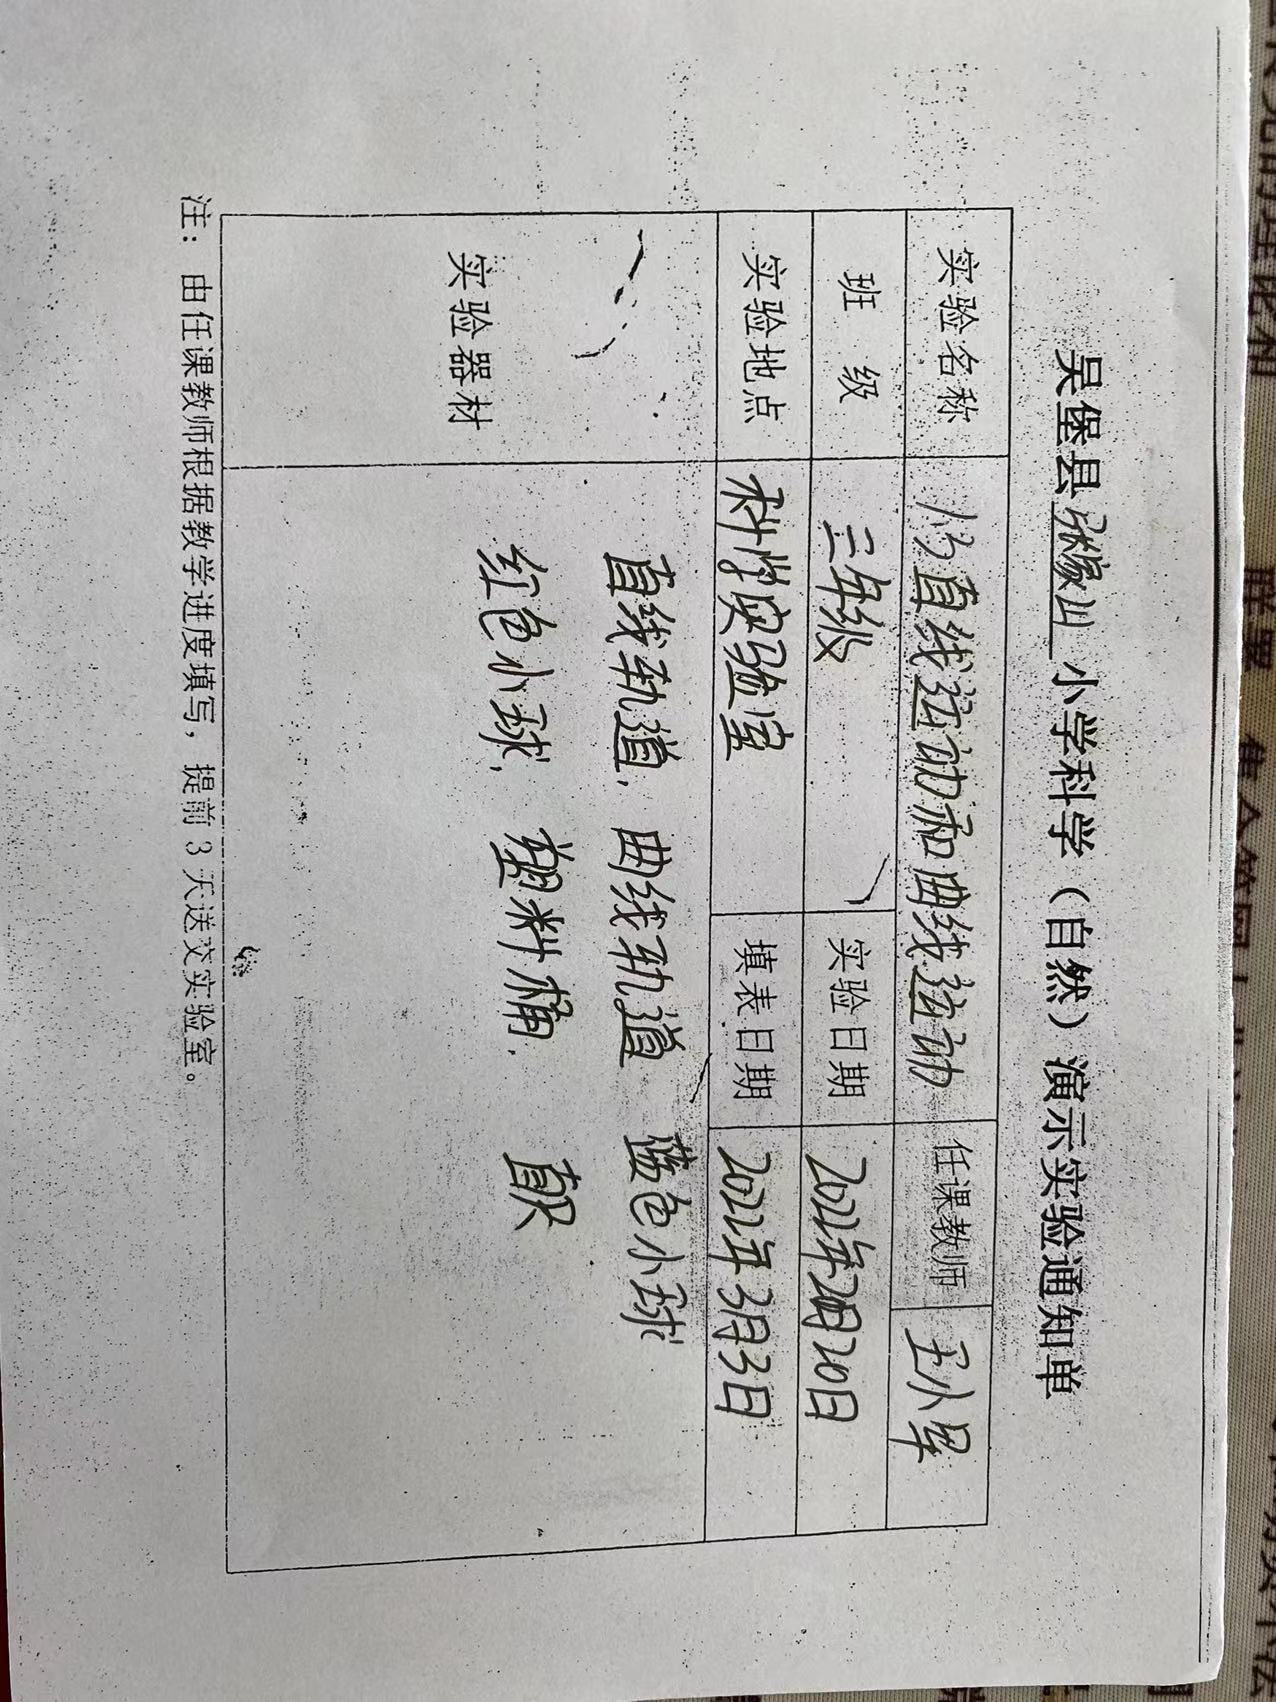 吴堡县张家山小学科学（自然）演示实验通知单
实验名称 15直线运动和曲线运动 任课教师 王小军
班 级 三年级 实验日期 2022年2月20日
实验地点 科学实验室 填表日期 2022年3月3日
实验器材
直线轨道, 曲线轨道 蓝色小球
红色小球, 塑料桶, 直尺
注：由任课教师根据教学进度填写，提前 3 天送交实验室。